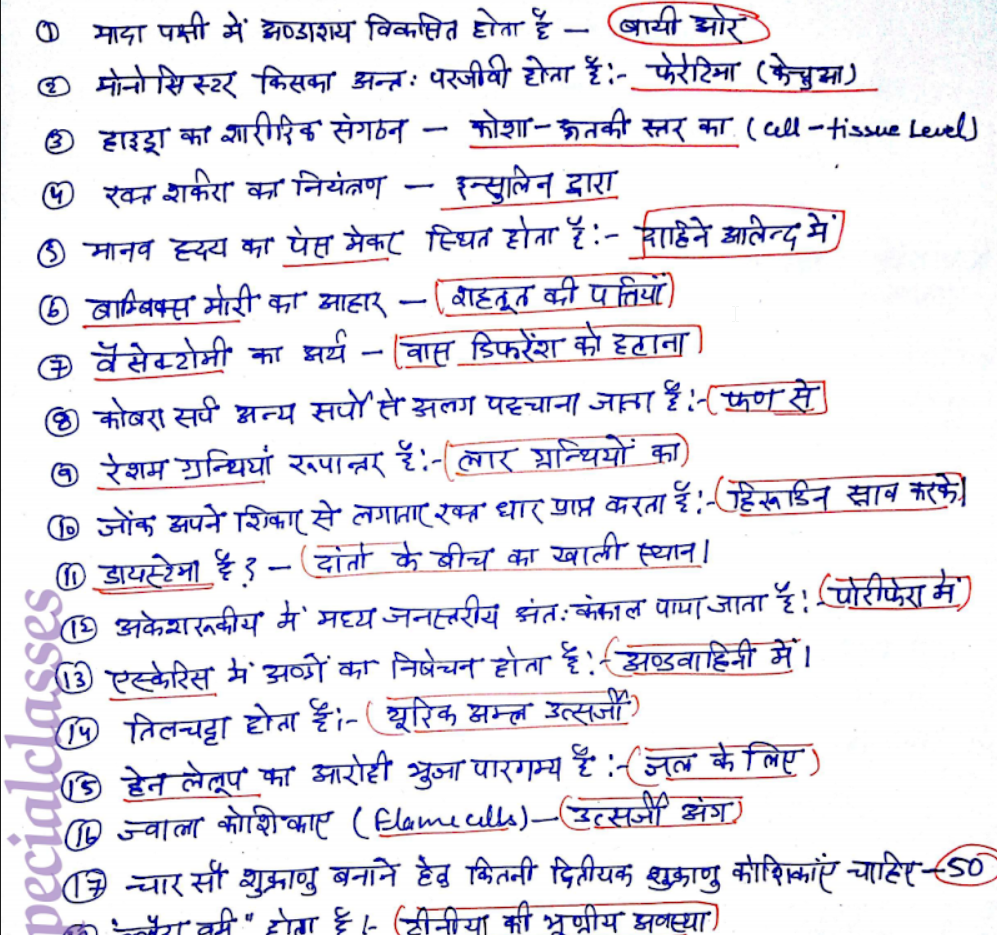 ① मादा पक्षी में अण्डाशय विकसित होता है — बायी ओर
② मोनोसिस्टर किसका अन्तः परजीवी होता है:- फेरेटिमा (केचुआ)
③ हाइड्रा का शारीरिक संगठन — कोशा-ऊतकी स्तर का (cell-tissue Level)
④ रक्त शर्करा का नियंत्रण — इन्सुलिन द्वारा
⑤ मानव हृदय का पेस मेकर स्थित होता है:- दाहिने आलिन्द में
⑥ बाम्बिक्स मोरी का आहार — शहतूत की पत्तियाँ
⑦ वैसेक्टोमी का अर्थ — वास डिफरेंश को हटाना
⑧ कोबरा सर्प अन्य सर्पों से अलग पहचाना जाता है:- फण से
⑨ रेशम ग्रन्थियां रूपान्तर है:- लार ग्रन्थियों का
⑩ जोंक अपने शिकार से लगातार रक्त धार प्राप्त करता है:- हिरूडिन स्राव करके।
⑪ डायस्टेमा है? — दांतो के बीच का खाली स्थान।
⑫ अकेशरूकीय में मध्य जनस्तरीय अंतःकंकाल पाया जाता है:- पोरीफेरा में
⑬ एस्केरिस में अण्डों का निषेचन होता है:- अण्डवाहिनी में।
⑭ तिलचट्टा होता है:- यूरिक अम्ल उत्सर्जी
⑮ हेन लेलूप का आरोही भुजा पारगम्य है:- जल के लिए
⑯ ज्वाला कोशिकाए (flame cells) — उत्सर्जी अंग
⑰ चार सौ शुक्राणु बनाने हेतु कितनी द्वितीयक शुक्राणु कोशिकाएँ चाहिए — 50
वर्म" होता है:- टीनीया की भ्रूणीय अवस्था
pecialclasses